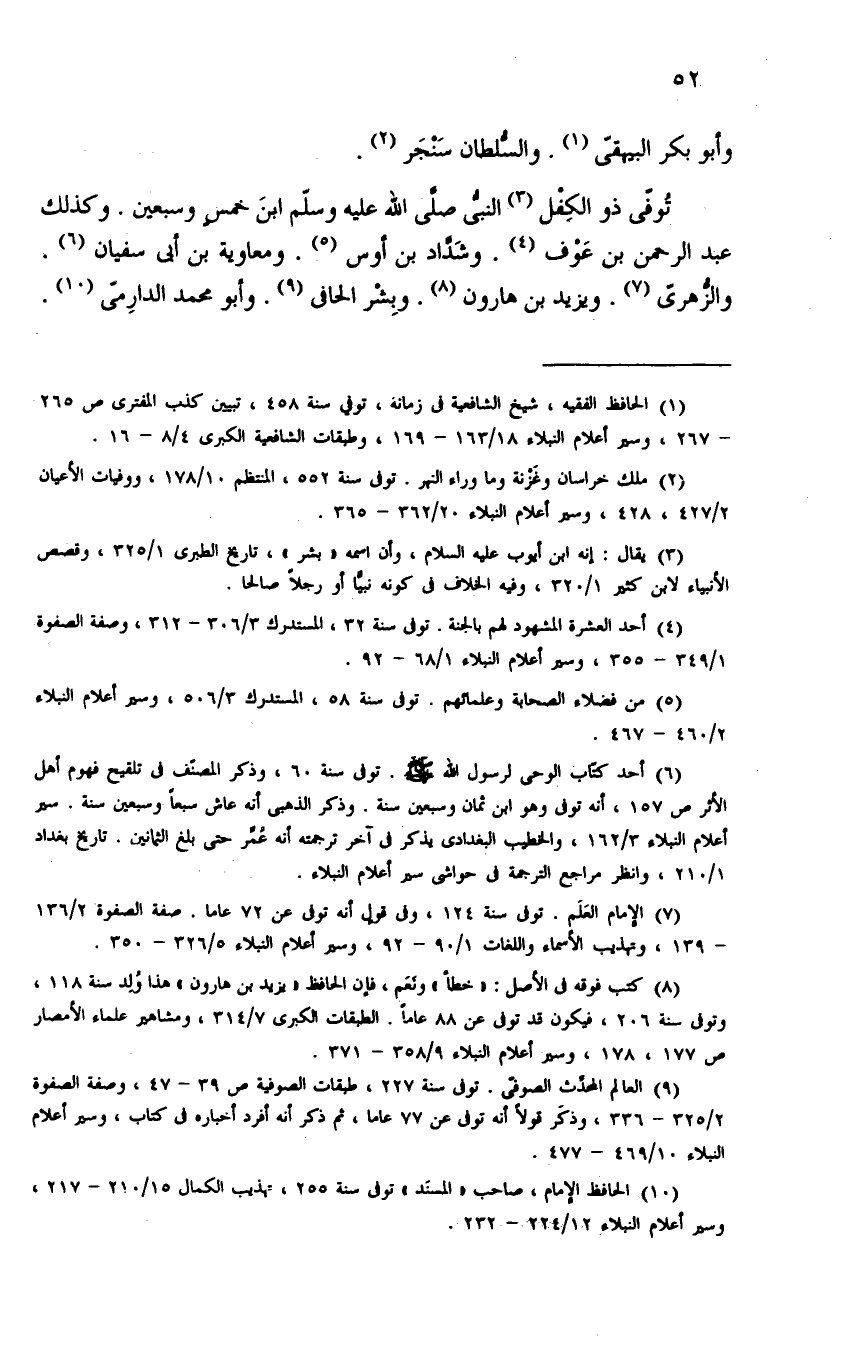 ٥٢
وأبو بكر البيهقىّ (١) . والسُّلطان سَنْجَر (٢) .
تُوفّى ذو الكِفْل (٣) النبىُّ صلَّى الله عليه وسلّم ابنَ خمسٍ وسبعين . وكذلك
عبد الرحمن بن عَوْف (٤) . وشَدَّاد بن أوس (٥) . ومعاوية بن أبى سفيان (٦) .
والزُّهرىّ (٧) . ويزيد بن هارون (٨) . وبِشْر الحافى (٩) . وأبو محمد الدارمىّ (١٠) .
(١) الحافظ الفقيه ، شيخ الشافعية فى زمانة ، توفي سنة ٤٥٨ ، تبيين كذب المفترى ص ٢٦٥
– ٢٦٧ ، وسير أعلام النبلاء ١٦٣/١٨ – ١٦٩ ، وطبقات الشافعية الكبرى ٨/٤ – ١٦ .
(٢) ملك خراسان وغَزْنة وما وراء النهر . توفى سنة ٥٥٢ ، المنتظم ١٧٨/١٠ ، ووفيات الأعيان
٤٢٧/٢ ، ٤٢٨ ، وسير أعلام النبلاء ٣٦٢/٢٠ – ٣٦٥ .
(٣) يقال : إنه ابن أيوب عليه السلام ، وأن اسمه « بشر » ، تاريخ الطبرى ٣٢٥/١ ، وقصص
الأنبياء لابن كثير ٣٢٠/١ ، وفيه الخلاف فى كونه نبيًّا أو رجلاً صالحا .
(٤) أحد العشرة المشهود لهم بالجنة . توفى سنة ٣٢ ، المستدرك ٣٠٦/٣ – ٣١٢ ، وصفة الصفوة
٣٤٩/١ – ٣٥٥ ، وسير أعلام النبلاء ٦٨/١ – ٩٢ .
(٥) من فضلاء الصحابة وعلمائهم . توفى سنة ٥٨ ، المستدرك ٥٠٦/٣ ، وسير أعلام النبلاء
٤٦٠/٢ – ٤٦٧ .
(٦) أحد كتّاب الوحى لرسول الله ﷺ . توفى سنة ٦٠ ، وذكر المصنّف فى تلقيح فهوم أهل
الأثر ص ١٥٧ ، أنه توفى وهو ابن ثمان وسبعين سنة . وذكر الذهبى أنه عاش سبعاً وسبعين سنة . سير
أعلام النبلاء ١٦٢/٣ ، والخطيب البغدادى يذكر فى آخر ترجمته أنه عُمِّر حتى بلغ الثمانين . تاريخ بغداد
٢١٠/١ ، وانظر مراجع الترجمة فى حواشى سير أعلام النبلاء .
(٧) الإمام العَلَم . توفى سنة ١٢٤ ، وفى قولٍ أنه توفى عن ٧٢ عاما . صفة الصفوة ١٣٦/٢
– ١٣٩ ، وتهذيب الأسماء واللغات ٩٠/١ – ٩٢ ، وسير أعلام النبلاء ٣٢٦/٥ – ٣٥٠ .
(٨) كتب فوقه فى الأصل : « خطأ » ونَعَم ، فإن الحافظ « يزيد بن هارون » هذا وُلِد سنة ١١٨ ،
وتوفى سنة ٢٠٦ ، فيكون قد توفى عن ٨٨ عاماً . الطبقات الكبرى ٣١٤/٧ ، ومشاهير علماء الأمصار
ص ١٧٧ ، ١٧٨ ، وسير أعلام النبلاء ٣٥٨/٩ – ٣٧١ .
(٩) العالم المحدِّث الصوفّى . توفى سنة ٢٢٧ ، طبقات الصوفية ص ٣٩ – ٤٧ ، وصفة الصفوة
٣٢٥/٢ – ٣٣٦ ، وذكَر قولاً أنه توفى عن ٧٧ عاما ، ثم ذكر أنه أفرد أخباره فى كتاب ، وسير أعلام
النبلاء ٤٦٩/١٠ – ٤٧٧ .
(١٠) الحافظ الإمام ، صاحب « المسنَد » توفى سنة ٢٥٥ ، تهذيب الكمال ٢١٠/١٥ – ٢١٧ ،
وسير أعلام النبلاء ٢٢٤/١٢ – ٢٣٢ .